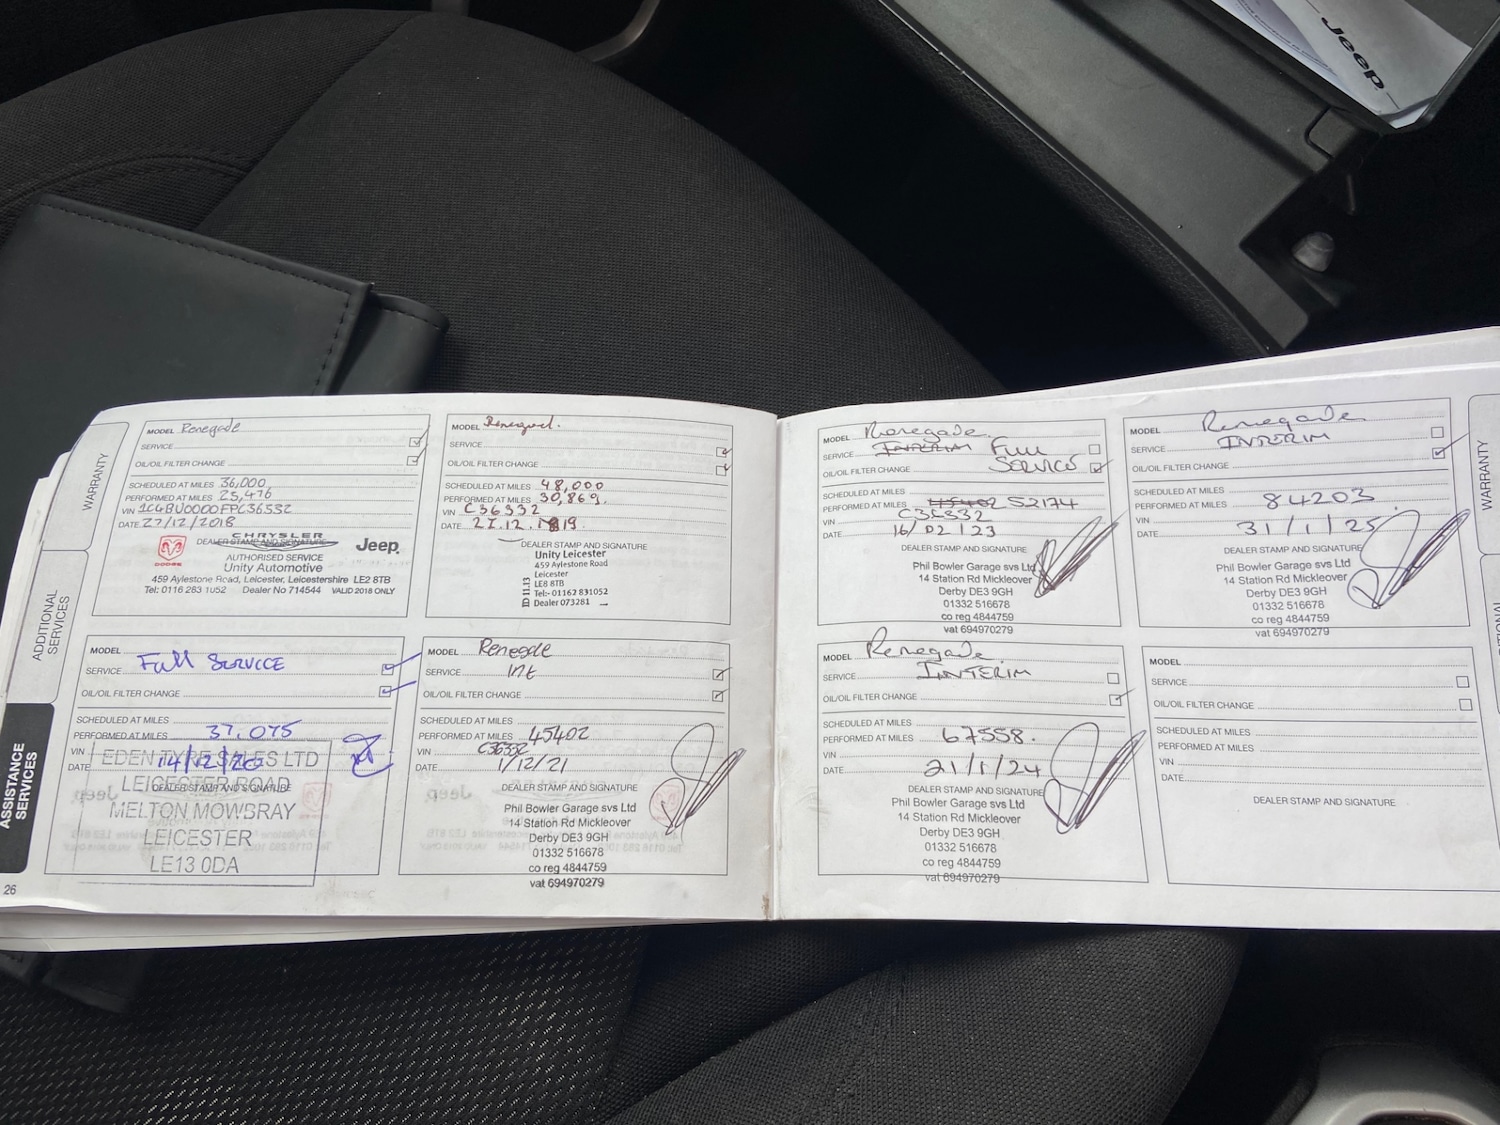 Jeep
WARRANTY
ADDITIONAL
SERVICES
ASSISTANCE
SERVICES
26
MODEL Renegade
SERVICE
OIL/OIL FILTER CHANGE
SCHEDULED AT MILES 36,000
PERFORMED AT MILES 25,476
VIN 1C4BU0000FPC36532
DATE 27/12/2018
CHRYSLER
DEALER STAMP AND SIGNATURE
DODGE
Jeep
AUTHORISED SERVICE
Unity Automotive
459 Aylestone Road, Leicester, Leicestershire LE2 8TB
Tel: 0116 283 1052 Dealer No 714544 VALID 2018 ONLY
MODEL
SERVICE
OIL/OIL FILTER CHANGE
SCHEDULED AT MILES 48,000
PERFORMED AT MILES 30,869.
VIN C36332
DATE 27.12.19
DEALER STAMP AND SIGNATURE
Unity Leicester
459 Aylestone Road
Leicester
LE8 8TB
Tel:- 01162 831052
Dealer 073281
ID 11.13
MODEL
Full SERVICE
SERVICE
OIL/OIL FILTER CHANGE
SCHEDULED AT MILES
PERFORMED AT MILES 37,075
VIN
DATE 14/12/20
DEALER STAMP AND SIGNATURE
EDEN TYRE SALES LTD
LEICESTER ROAD
MELTON MOWBRAY
LEICESTER
LE13 0DA
MODEL Renegade
SERVICE INT
OIL/OIL FILTER CHANGE
SCHEDULED AT MILES
PERFORMED AT MILES 45402
VIN C36332
DATE 1/12/21
DEALER STAMP AND SIGNATURE
Phil Bowler Garage svs Ltd
14 Station Rd Mickleover
Derby DE3 9GH
01332 516678
co reg 4844759
vat 694970279
MODEL Renegade
SERVICE INTERIM Full
OIL/OIL FILTER CHANGE SERVICE
SCHEDULED AT MILES
PERFORMED AT MILES 45402 52174
VIN C36332
DATE 16/02/23
DEALER STAMP AND SIGNATURE
Phil Bowler Garage svs Ltd
14 Station Rd Mickleover
Derby DE3 9GH
01332 516678
co reg 4844759
vat 694970279
MODEL Renegade
SERVICE INTERIM
OIL/OIL FILTER CHANGE
SCHEDULED AT MILES
PERFORMED AT MILES 84203
VIN
DATE 31/1/25
DEALER STAMP AND SIGNATURE
Phil Bowler Garage svs Ltd
14 Station Rd Mickleover
Derby DE3 9GH
01332 516678
co reg 4844759
vat 694970279
MODEL Renegade
SERVICE INTERIM
OIL/OIL FILTER CHANGE
SCHEDULED AT MILES
PERFORMED AT MILES 67558.
VIN
DATE 21/1/24
DEALER STAMP AND SIGNATURE
Phil Bowler Garage svs Ltd
14 Station Rd Mickleover
Derby DE3 9GH
01332 516678
co reg 4844759
vat 694970279
MODEL
SERVICE
OIL/OIL FILTER CHANGE
SCHEDULED AT MILES
PERFORMED AT MILES
VIN
DATE
DEALER STAMP AND SIGNATURE
WARRANTY